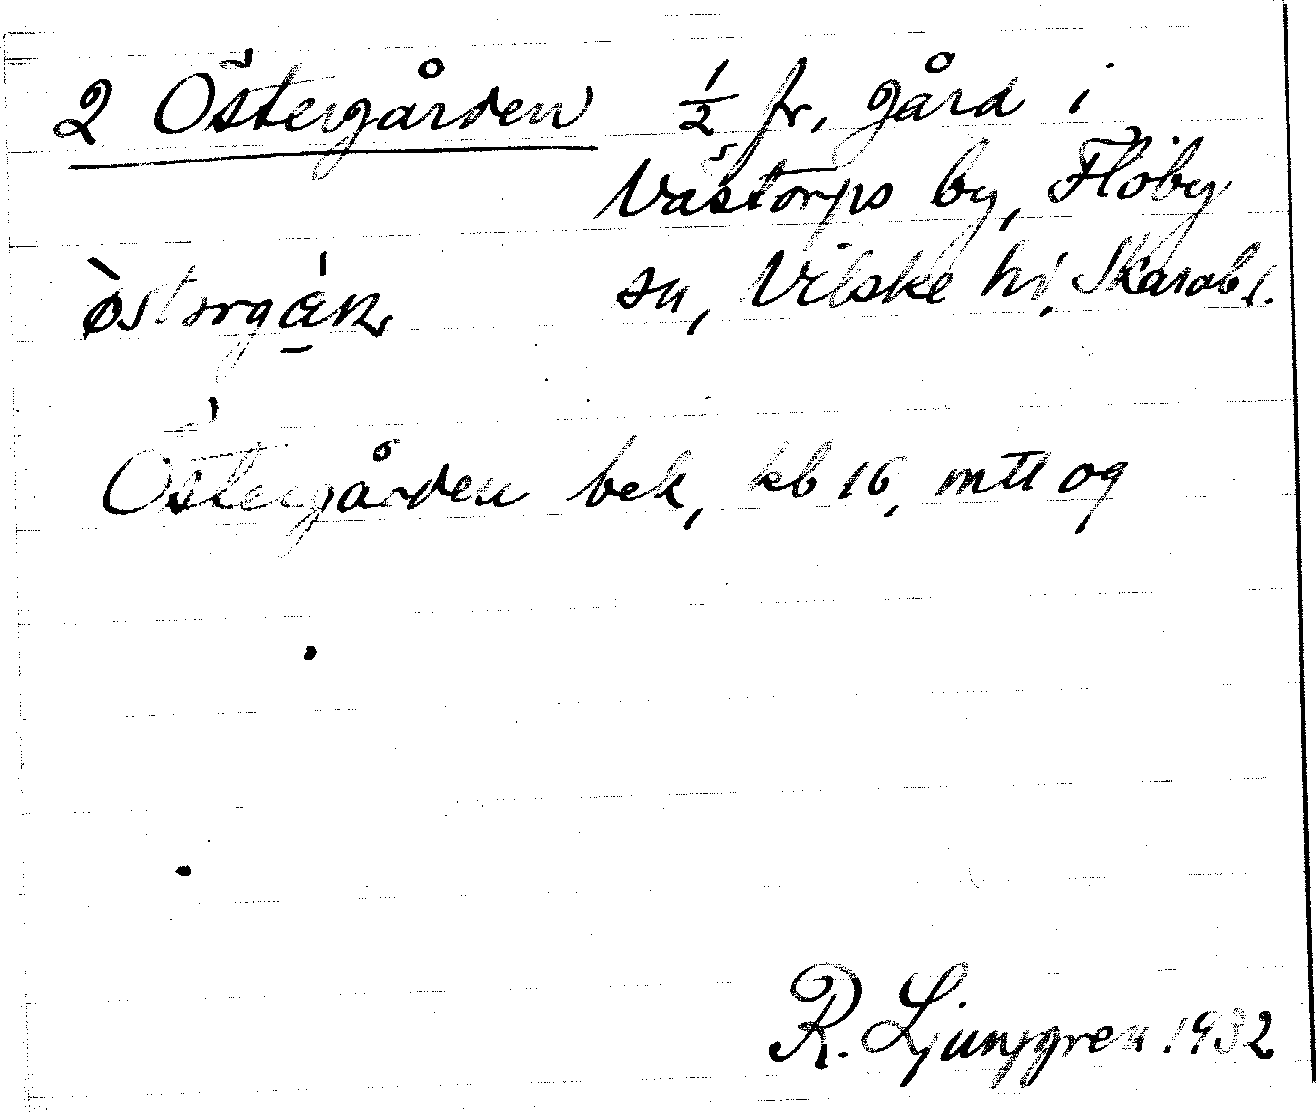 2 Östergården ½ fr. gård i
Västorps by, Flöby
sn, Vilske hd, Skarab l.
Östergården bek, kb 16, mtl og
R. Ljunggren 1932